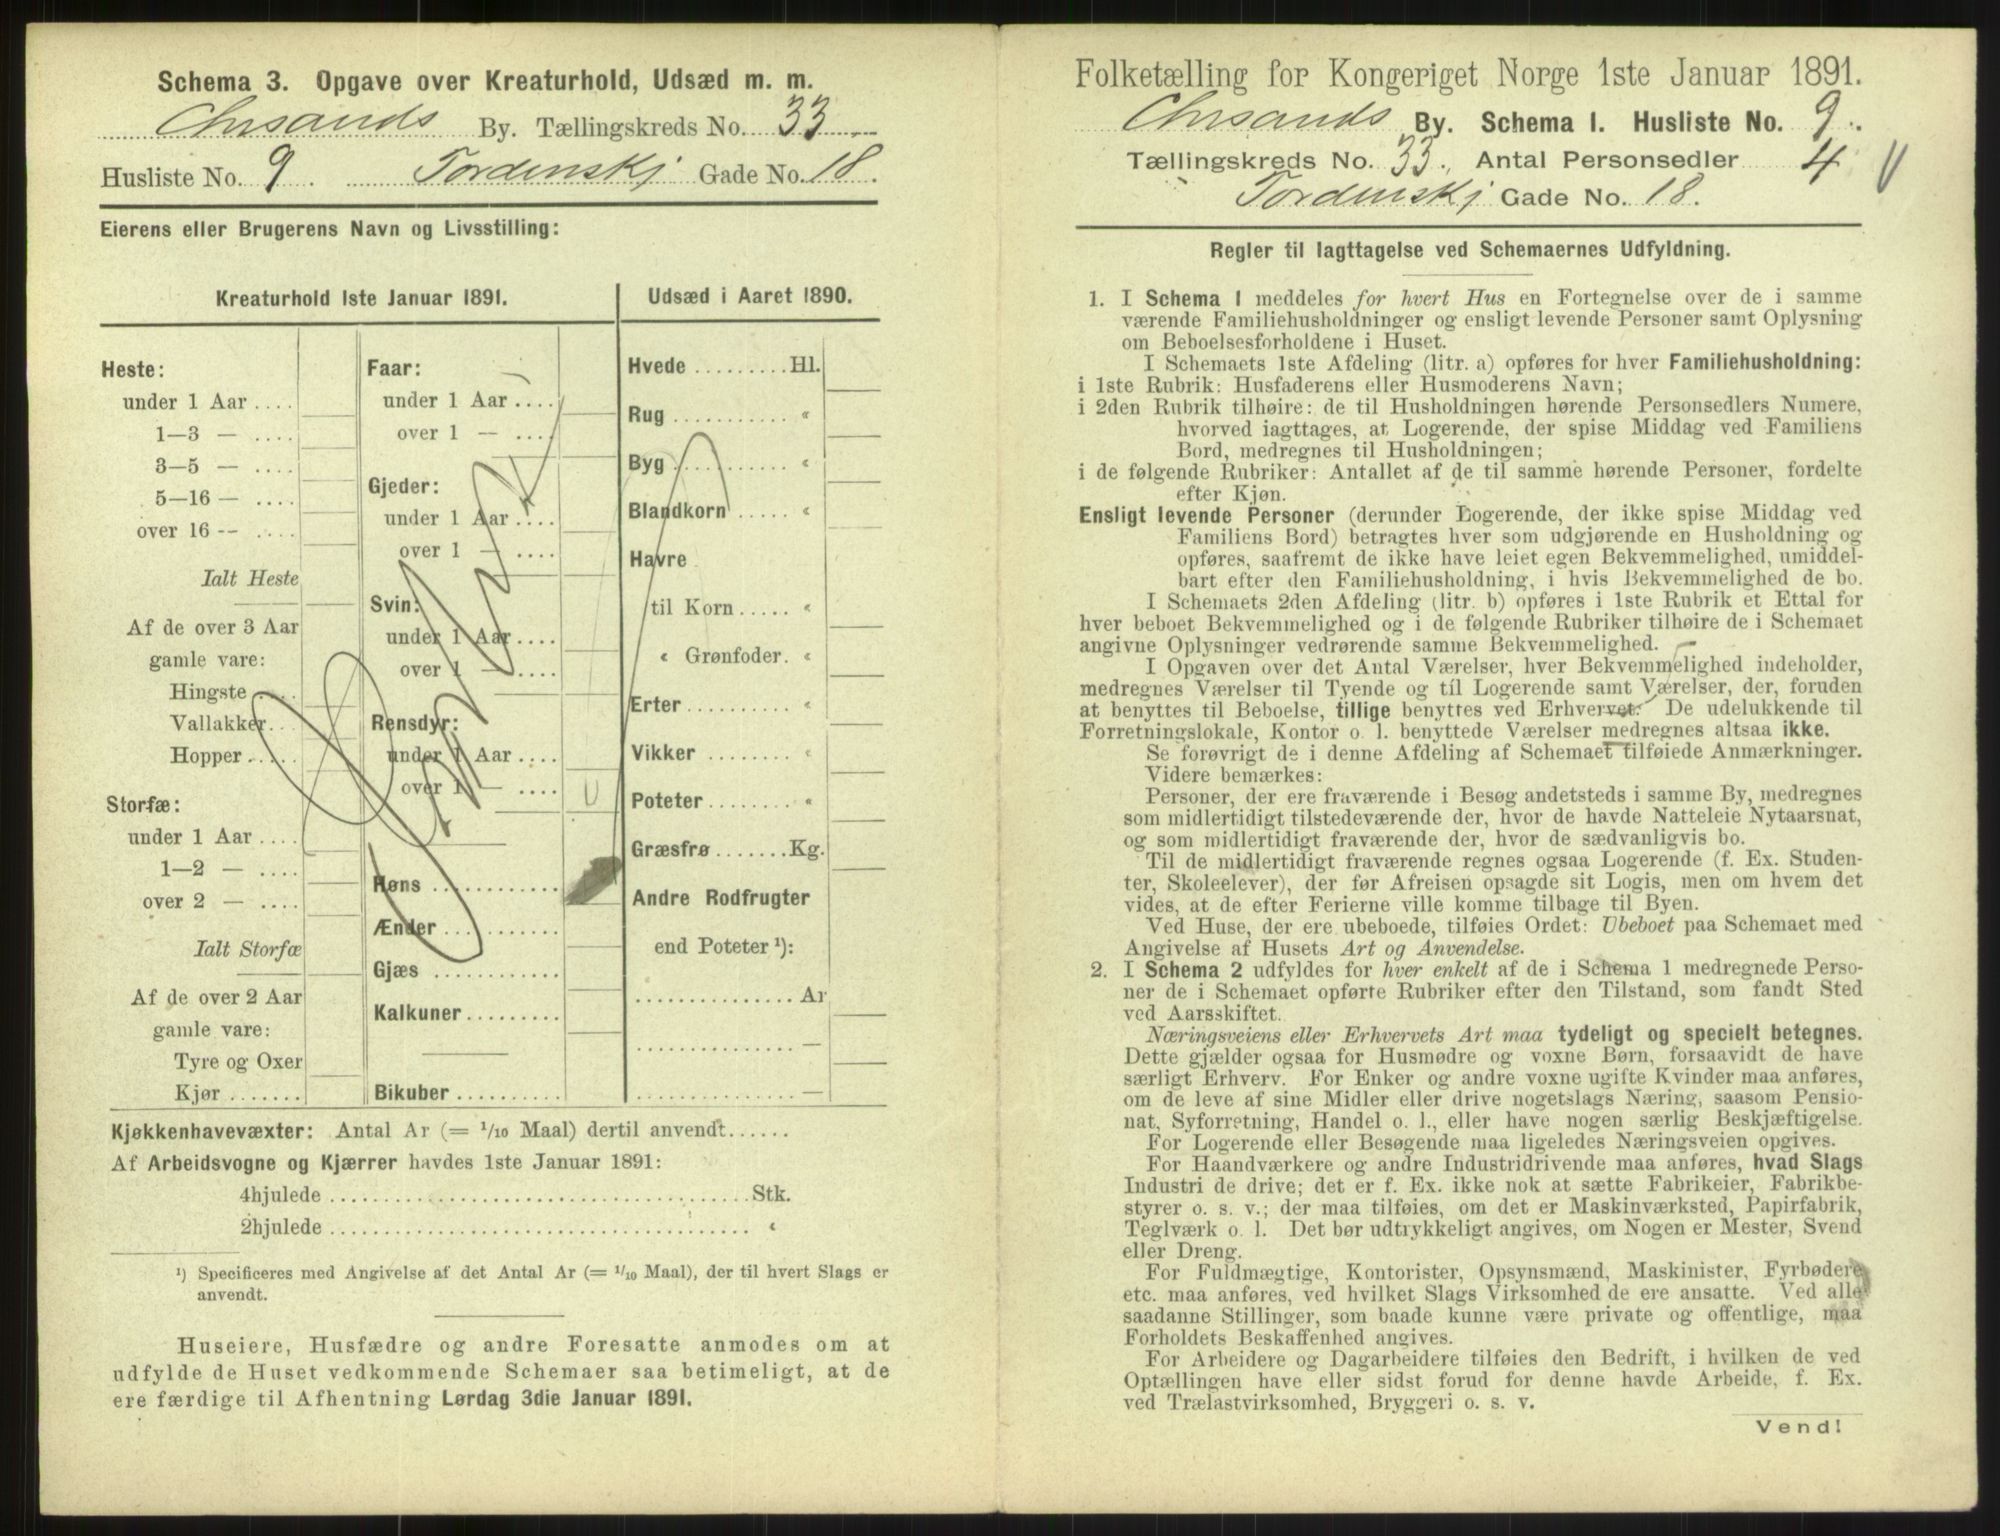 Schema 3. Opgave over Kreaturhold, Udsæd m. m.
Chrsands By. Tællingskreds No. 33
Husliste No. 9. Tordenskj Gade No. 18.
Eierens eller Brugerens Navn og Livsstilling:
Kreaturhold 1ste Januar 1891.
Heste:
under 1 Aar ....
1—3 — ....
3—5 — ....
5—16 — ....
over 16 -- ....
Ialt Heste
Af de over 3 Aar
gamle vare:
Hingste ....
Vallakker..
Hopper .....
Storfæ:
under 1 Aar ....
1—2 — ....
over 2 — ....
Ialt Storfæ
Af de over 2 Aar
gamle vare:
Tyre og Oxer
Kjør .......
Faar:
under 1 Aar ....
over 1 — ....
Gjeder:
under 1 Aar ....
over 1 — ....
Svin:
under 1 Aar ....
over 1 — ....
Rensdyr:
under 1 Aar ....
over 1 — ....
Høns ............
Ænder ...........
Gjæs ............
Kalkuner.........
Bikuber ..........
Udsæd i Aaret 1890.
Hvede .........Hl.
Rug ........... «
Byg ........... «
Blandkorn ..... «
Havre
til Korn ..... «
« Grønfoder. «
Erter ......... «
Vikker ........ «
Poteter ........ «
Græsfrø .......Kg.
Andre Rodfrugter
end Poteter ¹):
............... Ar
............... —
............... —
Kjøkkenhavevæxter: Antal Ar (= 1/10 Maal) dertil anvendt......
Af Arbeidsvogne og Kjærrer havdes 1ste Januar 1891:
4hjulede ........................................Stk.
2hjulede ........................................ «
¹) Specificeres med Angivelse af det Antal Ar (= 1/10 Maal), der til hvert Slags er
anvendt.
Huseiere, Husfædre og andre Foresatte anmodes om at
udfylde de Huset vedkommende Schemaer saa betimeligt, at de
ere færdige til Afhentning Lørdag 3die Januar 1891.
Folketælling for Kongeriget Norge 1ste Januar 1891.
Chrsands By. Schema 1. Husliste No. 9.
Tællingskreds No. 33. Antal Personsedler 4
Tordenskj Gade No. 18.
Regler til Iagttagelse ved Schemaernes Udfyldning.
1. I Schema 1 meddeles for hvert Hus en Fortegnelse over de i samme
værende Familiehusholdninger og ensligt levende Personer samt Oplysning
om Beboelsesforholdene i Huset.
I Schemaets 1ste Afdeling (litr. a) opføres for hver Familiehusholdning:
i 1ste Rubrik: Husfaderens eller Husmoderens Navn;
i 2den Rubrik tilhøire: de til Husholdningen hørende Personsedlers Numere,
hvorved iagttages, at Logerende, der spise Middag ved Familiens
Bord, medregnes til Husholdningen;
i de følgende Rubriker: Antallet af de til samme hørende Personer, fordelte
efter Kjøn.
Ensligt levende Personer (derunder Logerende, der ikke spise Middag ved
Familiens Bord) betragtes hver som udgjørende en Husholdning og
opføres, saafremt de ikke have leiet egen Bekvemmelighed, umiddel-
bart efter den Familiehusholdning, i hvis Bekvemmelighed de bo.
I Schemaets 2den Afdeling (litr. b) opføres i 1ste Rubrik et Ettal for
hver beboet Bekvemmelighed og i de følgende Rubriker tilhøire de i Schemaet
angivne Oplysninger vedrørende samme Bekvemmelighed.
I Opgaven over det Antal Værelser, hver Bekvemmelighed indeholder,
medregnes Værelser til Tyende og til Logerende samt Værelser, der, foruden
at benyttes til Beboelse, tillige benyttes ved Erhvervet. De udelukkende til
Forretningslokale, Kontor o. l. benyttede Værelser medregnes altsaa ikke.
Se forøvrigt de i denne Afdeling af Schemaet tilføiede Anmærkninger.
Videre bemærkes:
Personer, der ere fraværende i Besøg andetsteds i samme By, medregnes
som midlertidigt tilstedeværende der, hvor de havde Natteleie Nytaarsnat,
og som midlertidigt fraværende der, hvor de sædvanligvis bo.
Til de midlertidigt fraværende regnes ogsaa Logerende (f. Ex. Studen-
ter, Skoleelever), der før Afreisen opsagde sit Logis, men om hvem det
vides, at de efter Ferierne ville komme tilbage til Byen.
Ved Huse, der ere ubeboede, tilføies Ordet: Ubeboet paa Schemaet med
Angivelse af Husets Art og Anvendelse.
2. I Schema 2 udfyldes for hver enkelt af de i Schema 1 medregnede Perso-
ner de i Schemaet opførte Rubriker efter den Tilstand, som fandt Sted
ved Aarsskiftet.
Næringsveiens eller Erhvervets Art maa tydeligt og specielt betegnes.
Dette gjælder ogsaa for Husmødre og voxne Børn, forsaavidt de have
særligt Erhverv. For Enker og andre voxne ugifte Kvinder maa anføres,
om de leve af sine Midler eller drive nogetslags Næring, saasom Pensio-
nat, Syforretning, Handel o. l., eller have nogen særlig Beskjæftigelse.
For Logerende eller Besøgende maa ligeledes Næringsveien opgives.
For Haandværkere og andre Industridrivende maa anføres, hvad Slags
Industri de drive; det er f. Ex. ikke nok at sætte Fabrikeier, Fabrikbe-
styrer o. s. v.; der maa tilføies, om det er Maskinværksted, Papirfabrik,
Teglværk o. l. Det bør udtrykkeligt angives, om Nogen er Mester, Svend
eller Dreng.
For Fuldmægtige, Kontorister, Opsynsmænd, Maskinister, Fyrbødere
etc. maa anføres, ved hvilket Slags Virksomhed de ere ansatte. Ved alle
saadanne Stillinger, som baade kunne være private og offentlige, maa
Forholdets Beskaffenhed angives.
For Arbeidere og Dagarbeidere tilføies den Bedrift, i hvilken de ved
Optællingen have eller sidst forud for denne havde Arbeide, f. Ex.
ved Trælastvirksomhed, Bryggeri o. s. v.
Vend!